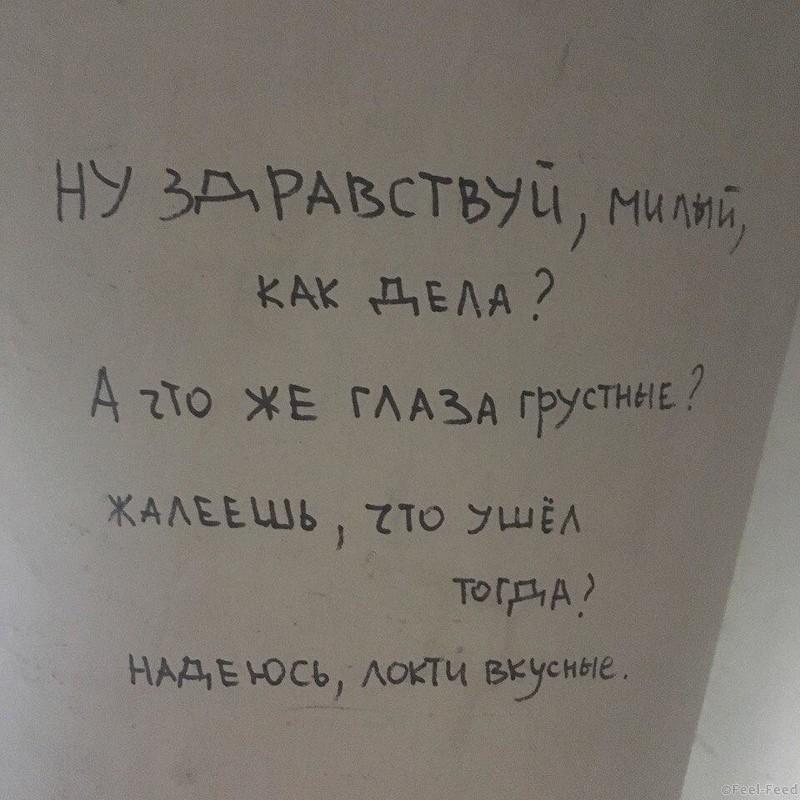 НУ ЗДРАВСТВУЙ, МИЛЫЙ,
КАК ДЕЛА?
А ЧТО ЖЕ ГЛАЗА ГРУСТНЫЕ?
ЖАЛЕЕШЬ, ЧТО УШЁЛ
ТОГДА?
НАДЕЮСЬ, ЛОКТИ ВКУСНЫЕ.
©Feel-Feed